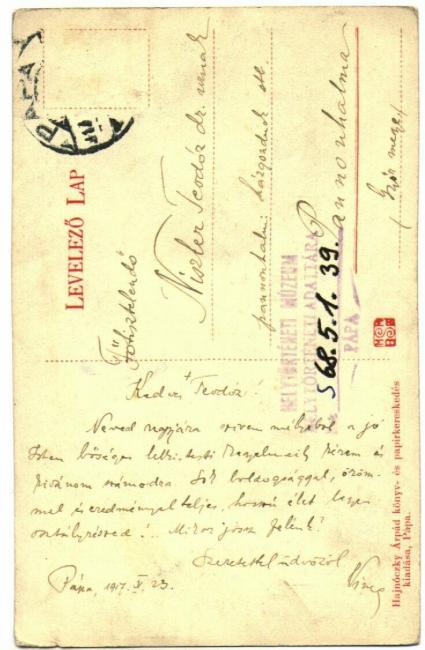 LEVELEZŐ LAP
PÁPA
Főtisztelendő
Niszler Teodóz dr. urnak
pannonhalmi házgondnok
Pannonhalma
Győr megye
HELYTÖRTÉNETI MÚZEUM
HELYTÖRTÉNETI ADATTÁRA
PÁPA
S 68.5.1.39.
Kedves Teodóz!
Neved napjára szívem mélyéből a jó
Isten bőséges lelki-testi kegyelmeit kérem és
kívánom számodra. Sok boldogsággal, öröm-
mel és eredménnyel teljes, hosszú élet legyen
osztályrészed! Mikor jössz felénk?
Szeretettel üdvözöl
Pápa, 1917. V. 23.
Hajnóczky Árpád könyv- és papirkereskedés
kiadása, Pápa.